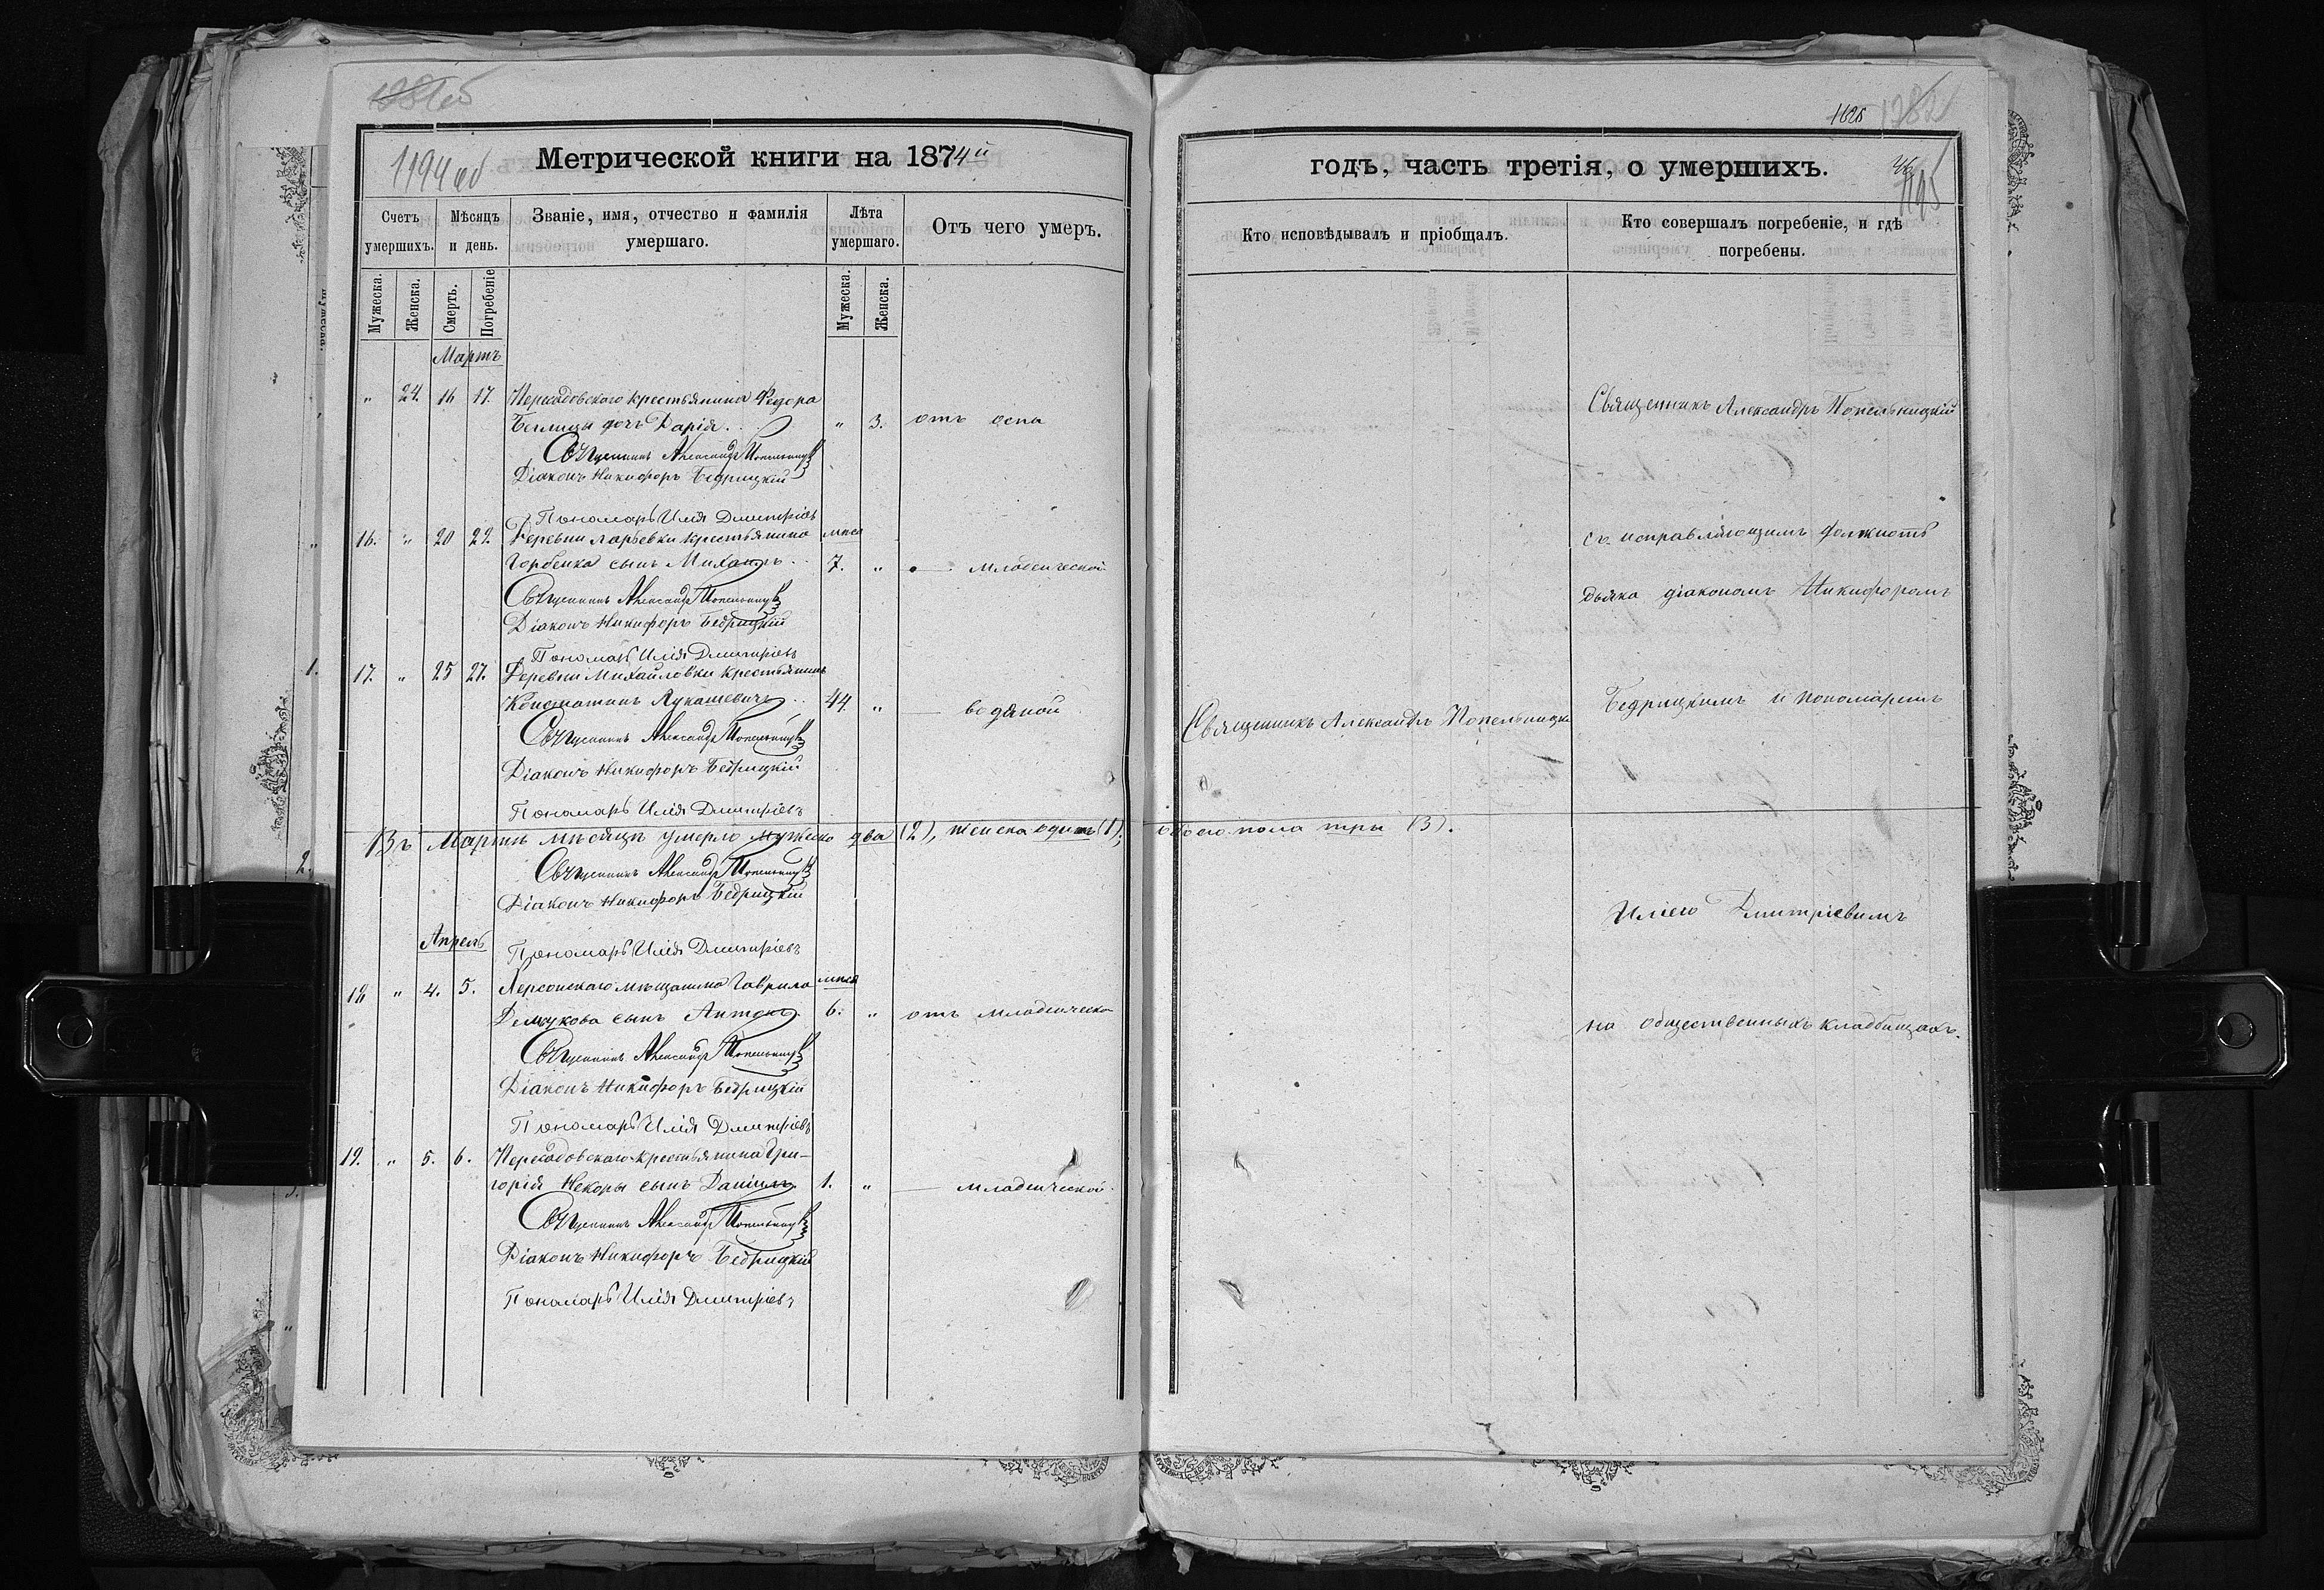 1194 об
1195
Метрической книги на 1874й
годъ, часть третія, о умершихъ.
Счетъ умершихъ.
Мѣсяцъ и день.
Званіе, имя, отчество и фамилія умершаго.
Лѣта умершаго.
Отъ чего умеръ.
Кто исповѣдывалъ и пріобщалъ.
Кто совершалъ погребеніе, и гдѣ погребены.
Мужеска.
Женска.
Смерть.
Погребеніе
Мужеска.
Женска.
Мартъ
" 24. 16 17. Пересадовского крестьянина Федора
Беглицы дочь Дарія . . " 3. отъ оспа
Священникъ Александръ Попельницкій
Діаконъ Никифоръ Бедрицкій
Пономарь Илія Дмитріевъ
16. " 20 22. Деревни Ларьевки крестьянина мцса
Горбенка сынъ Михаилъ . . 7. " — младенческой
Священникъ Александръ Попельницкій
Діаконъ Никифоръ Бедрицкій
Пономарь Илія Дмитріевъ
17. " 25 27. Деревни Михайловки крестьянинъ
Константинъ Лукашевичъ . . 44 " — водяной
Священникъ Александръ Попельницкій
Діаконъ Никифоръ Бедрицкій
Пономарь Илія Дмитріевъ
Въ Мартѣ мѣсяцѣ умерло мужеска два (2), женска одинъ (1), обоего пола три (3).
Священникъ Александръ Попельницкій
Діаконъ Никифоръ Бедрицкій
Апрель
Пономарь Илія Дмитріевъ
18 " 4. 5. Херсонскаго мѣщанина Гаврила мцса
сынъ Антонъ. 6. " отъ младенческа
Священникъ Александръ Попельницкій
Діаконъ Никифоръ Бедрицкій
Пономарь Илія Дмитріевъ
19. " 5. 6. Пересадовскаго крестьянина Гри-
горія Некоры сынъ Даніилъ 1. " — младенческой
Священникъ Александръ Попельницкій
Діаконъ Никифоръ Бедрицкій
Пономарь Илія Дмитріевъ
Священникъ Александръ Попельницкі
Священникъ Александръ Попельницкій
съ исправляющимъ должность
дьяка діакономъ Никифоромъ
Бедрицкимъ и пономаремъ
Иліею Дмитріевимъ
на общественныхъ кладбищахъ.